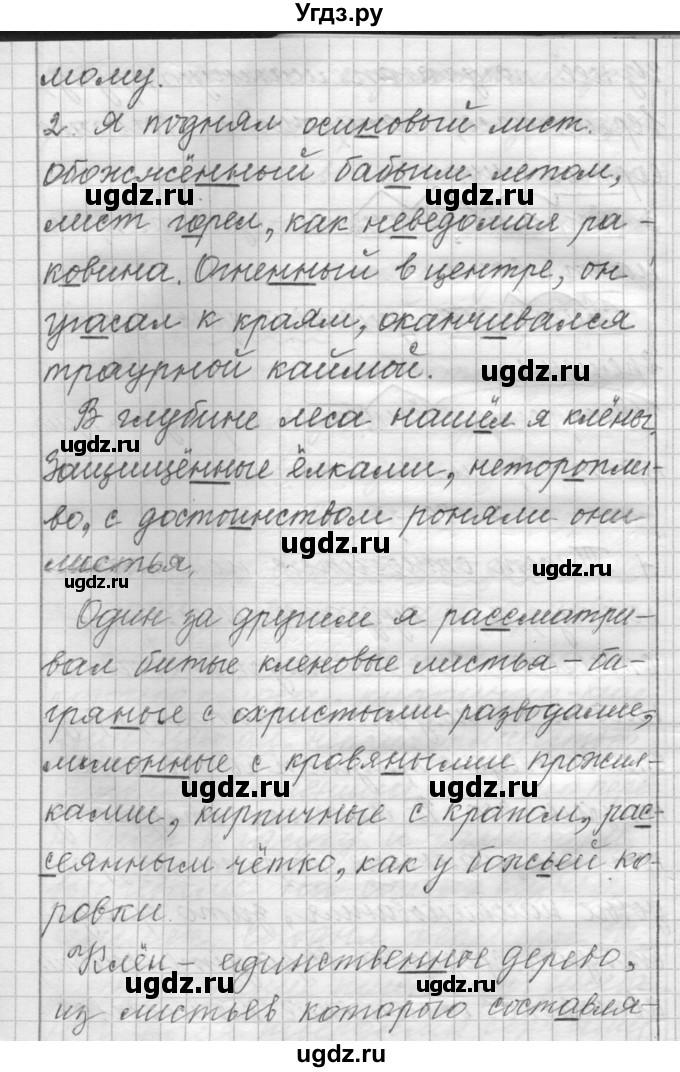 Угдз.ру
мому.
2. Я поднял осиновый лист.
Обожжённый бабьим летом,
лист горел, как неведомая ра-
ковина. Огненный в центре, он
угасал к краям, оканчивался
траурной каймой.
В глубине леса нашёл я клёны.
Защищённые ёлками, неторопли-
во, с достоинством роняли они
листья.
Один за другим я рассматри-
вал битые кленовые листья – ба-
гряные с охристыми разводами,
лимонные с кровяными прожил-
ками, кирпичные с крапом, рас-
сеянным чётко, как у божьей ко-
ровки.
Клён – единственное дерево,
из листьев которого составля-
ugdz.ru
ugdz.ru
ugdz.ru
ugdz.ru
ugdz.ru
ugdz.ru
ugdz.ru
ugdz.ru
ugdz.ru
ugdz.ru
ugdz.ru
ugdz.ru
ugdz.ru
ugdz.ru